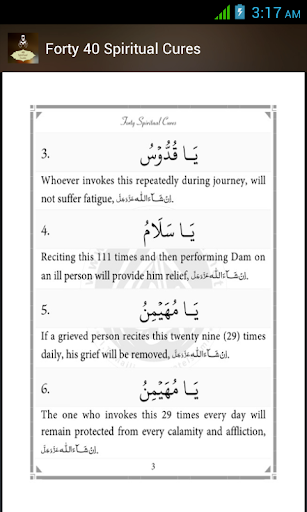 3:17 AM
Forty 40 Spiritual Cures
Forty Spiritual Cures
3. يَا قُدُّوْسُ
Whoever invokes this repeatedly during journey, will
not suffer fatigue, اِنْ شَــآءَاللّٰه عَزَّوَجَلَّ.
4. يَا سَلَامُ
Reciting this 111 times and then performing Dam on
an ill person will provide him relief, اِنْ شَــآءَاللّٰه عَزَّوَجَلَّ.
5. يَا مُهَيْمِنُ
If a grieved person recites this twenty nine (29) times
daily, his grief will be removed, اِنْ شَــآءَاللّٰه عَزَّوَجَلَّ.
6. يَا مُهَيْمِنُ
The one who invokes this 29 times every day will
remain protected from every calamity and affliction,
اِنْ شَــآءَاللّٰه عَزَّوَجَلَّ.
3